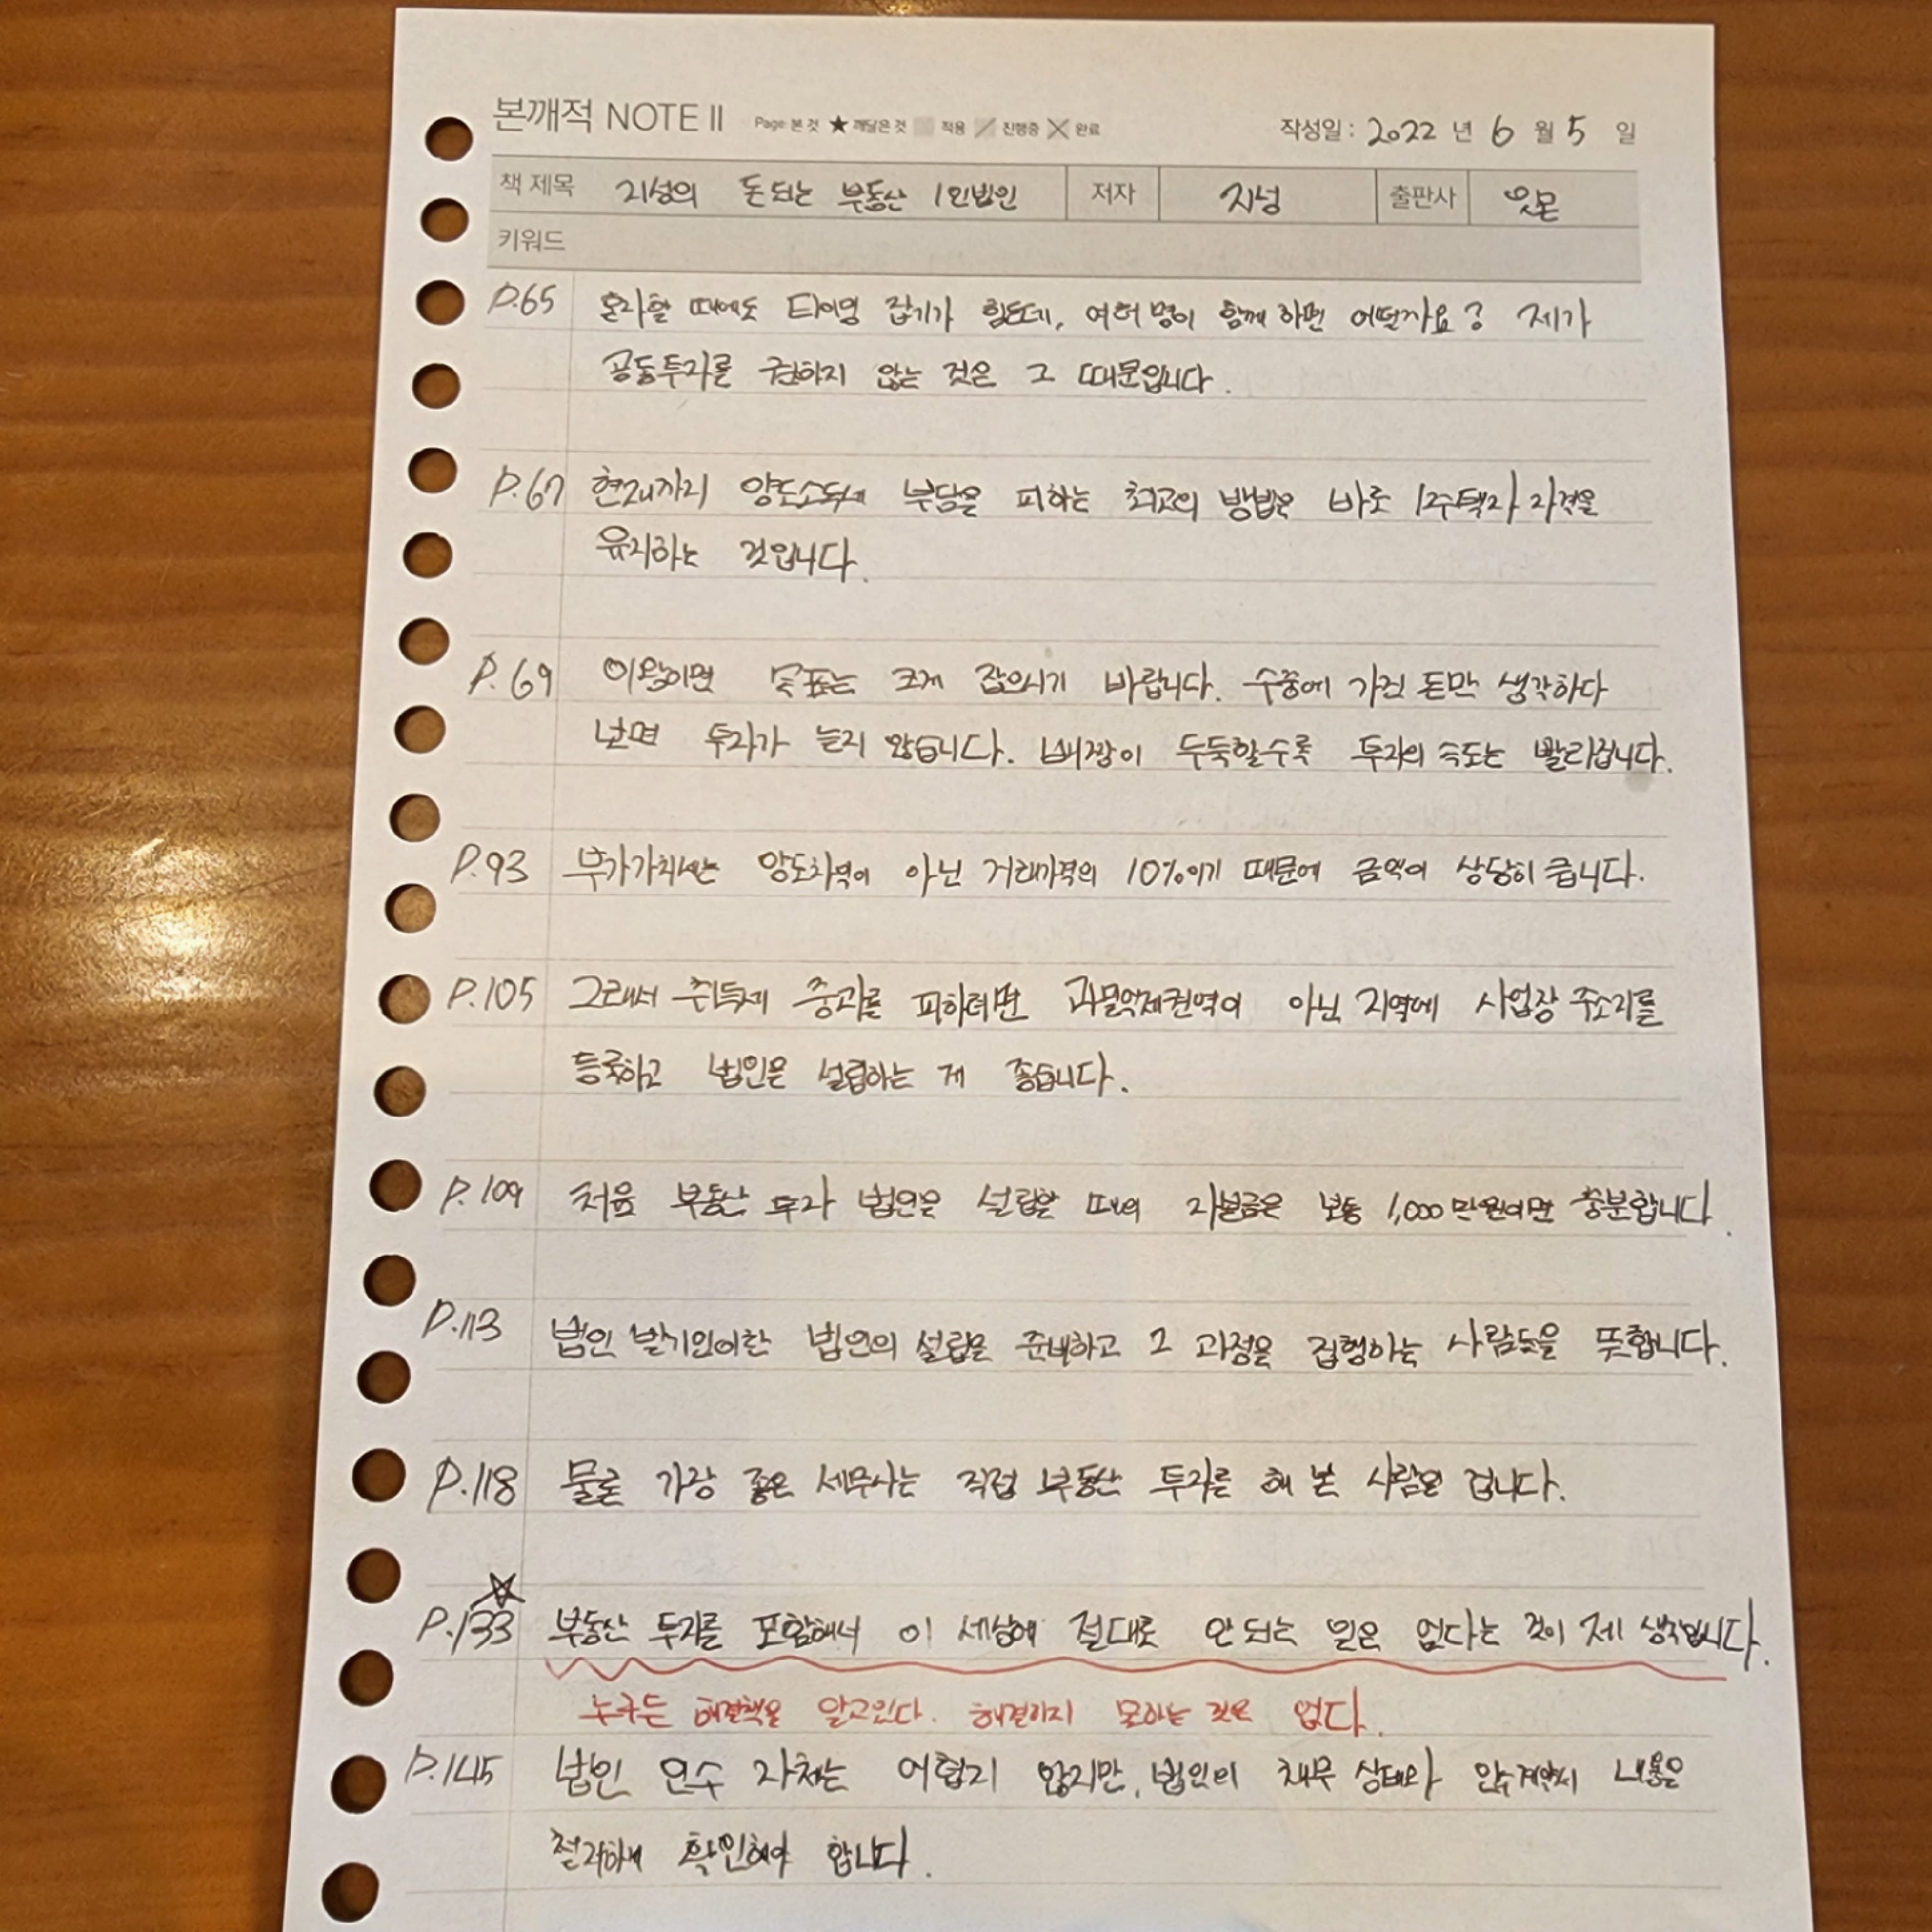 본깨적 NOTE II Page 본 것 ★ 깨달은 것 적용 진행중 완료 작성일 : 2022 년 6 월 5 일
책 제목 지성의 돈되는 부동산 1인법인 저자 지성 출판사 잇콘
키워드
P.65 혼자할 때에도 타이밍 잡기가 힘든데, 여러 명이 함께 하면 어떨까요? 제가
공동투자를 권하지 않는 것은 그 때문입니다.
P.67 현재까지 양도소득세 부담을 피하는 최고의 방법은 바로 1주택자 자격을
유지하는 것입니다.
P.69 이왕이면 목표는 크게 잡으시기 바랍니다. 수중에 가진 돈만 생각하다
보면 투자가 늘지 않습니다. 배짱이 두둑할수록 투자의 속도는 빨라집니다.
P.93 부가가치세는 양도차익이 아닌 거래가격의 10%이기 때문에 금액이 상당히 큽니다.
P.105 그래서 취득세 중과를 피하려면 과밀억제권역이 아닌 지역에 사업장 주소지를
등록하고 법인을 설립하는 게 좋습니다.
P.109 처음 부동산 투자 법인을 설립할 때의 자본금은 보통 1,000만원이면 충분합니다.
P.113 법인 발기인이란 법인의 설립을 준비하고 그 과정을 집행하는 사람들을 뜻합니다.
P.118 물론 가장 좋은 세무사는 직접 부동산 투자를 해 본 사람일 겁니다.
P.133 부동산 투자를 포함해서 이 세상에 절대로 안 되는 일은 없다는 것이 제 생각입니다.
누구든 해결책을 알고있다. 해결하지 못하는 것은 없다.
P.145 법인 인수 자체는 어렵지 않지만, 법인의 채무 상태와 인수계약서 내용은
철저하게 확인해야 합니다.